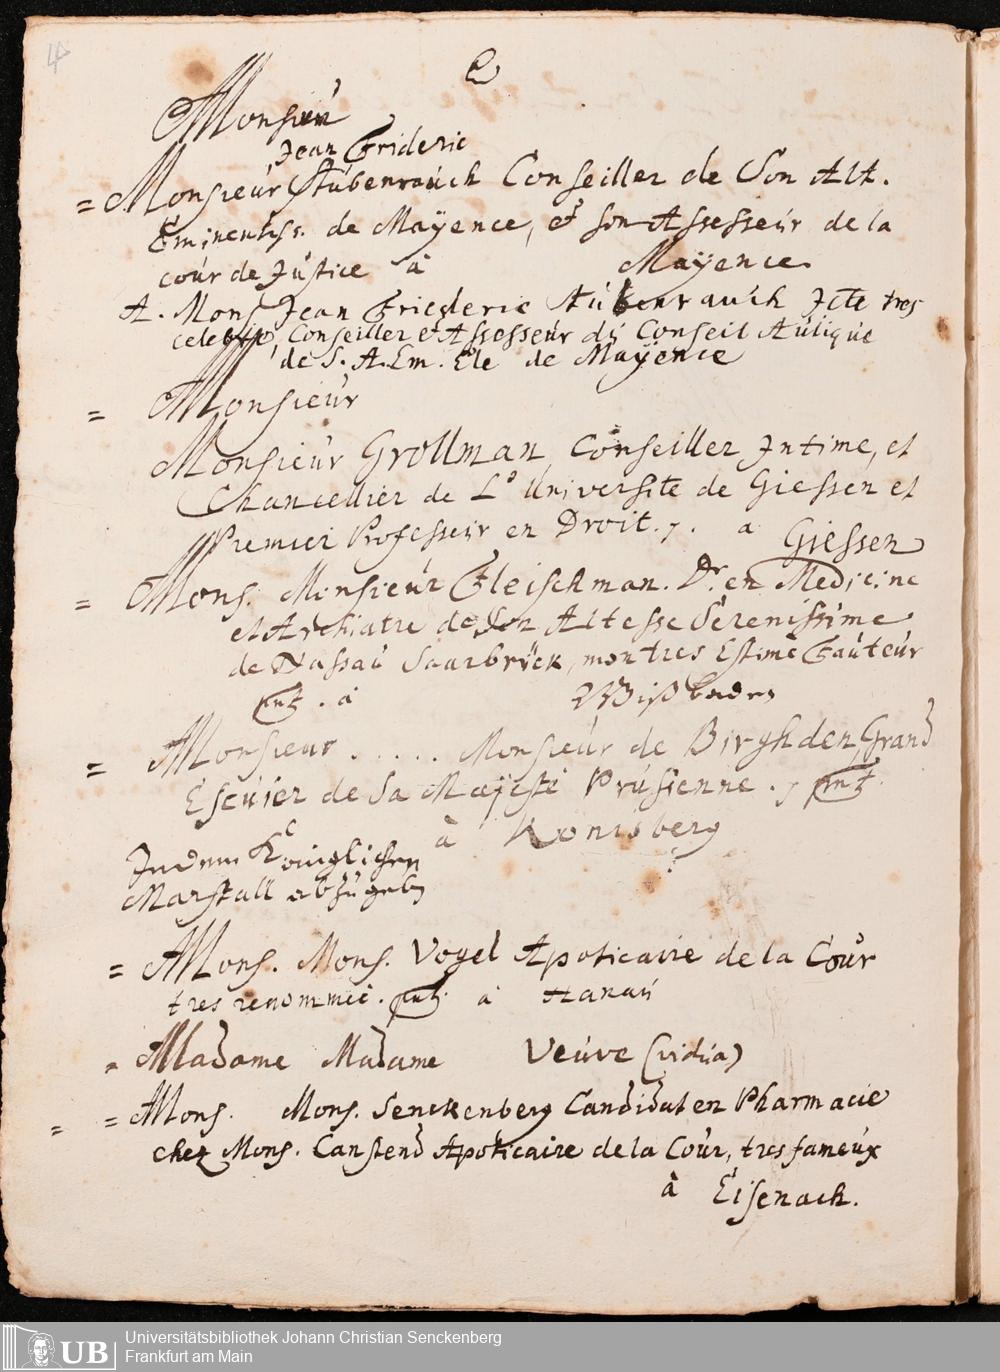 4
e
Monsieur
Jean Frideric
= Monsieur Stubenrauch Conseiller de Son Alt.
Eminentiss. de Maÿence, et son Assesseur de la
cour de Justice à Maÿence
A. Mons Jean Friederic Stubenrauch Jcte tres
celebre, Conseiller et Assesseur du Conseil Aulique
de S. A. Em. Ele de Maÿence
= Monsieur
Monsieur Grollman, Conseiller Intime, et
Chancellier de L' Universite de Giessen et
Premier Professeur en Droit. a Giessen
= Mons. Monsieur Fleischman. Dr. en Medicine
et Archiatre de Son Altesse Serenissime
de Nassau Saarbrück, mon tres Estimé Fauteur
. à Wißbaden
= Monsieur ..... Monsieur de Birghden, Grand
Escuier de Sa Majesté Prussienne.
à Konisberg
In dem Königlichen
Marstall abzugeben
= Mons. Mons. Vogel Apoticaire de la Cour
tres renommée. à Hanau
= Madame Madame Veuve (vidua)
= = Mons. Mons. Senckenberg Candidat en Pharmacie
chez Mons. Canstend Apoticaire de la Cour, tres fameux
à Eisenach.
UB Universitätsbibliothek Johann Christian Senckenberg
Frankfurt am Main